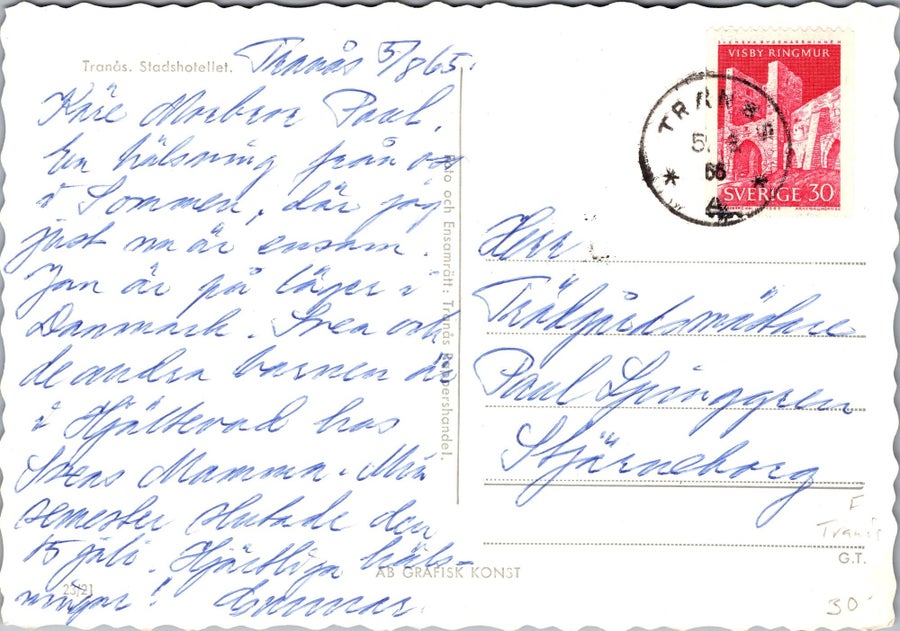 Tranås. Stadshotellet.
Tranås 5/8 65.
Käre Morbror Paul.
En hälsning från oss
i Sommen, där jag
just nu är ensam.
Jan är på läger i
Danmark. Svea och
de andra barnen är
i Hjältevad hos
Sveas Mamma. Min
semester slutade den
15 juli. Hjärtliga häls-
ningar! Gunnar.
Foto och Ensamrätt: Tranås Pappershandel.
23/21
AB GRAFISK KONST
VISBY RINGMUR
SVERIGE 30
TRANÅS
Herr
Trädgårdsmästare
Paul Ljunggren
Stjärneborg
F
Tranås
G.T.
30